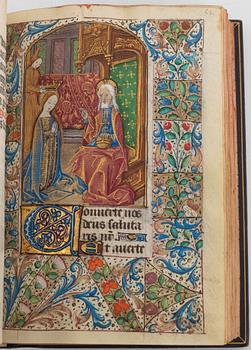 Converte nos
deus saluta
ris nr̄
Et averte